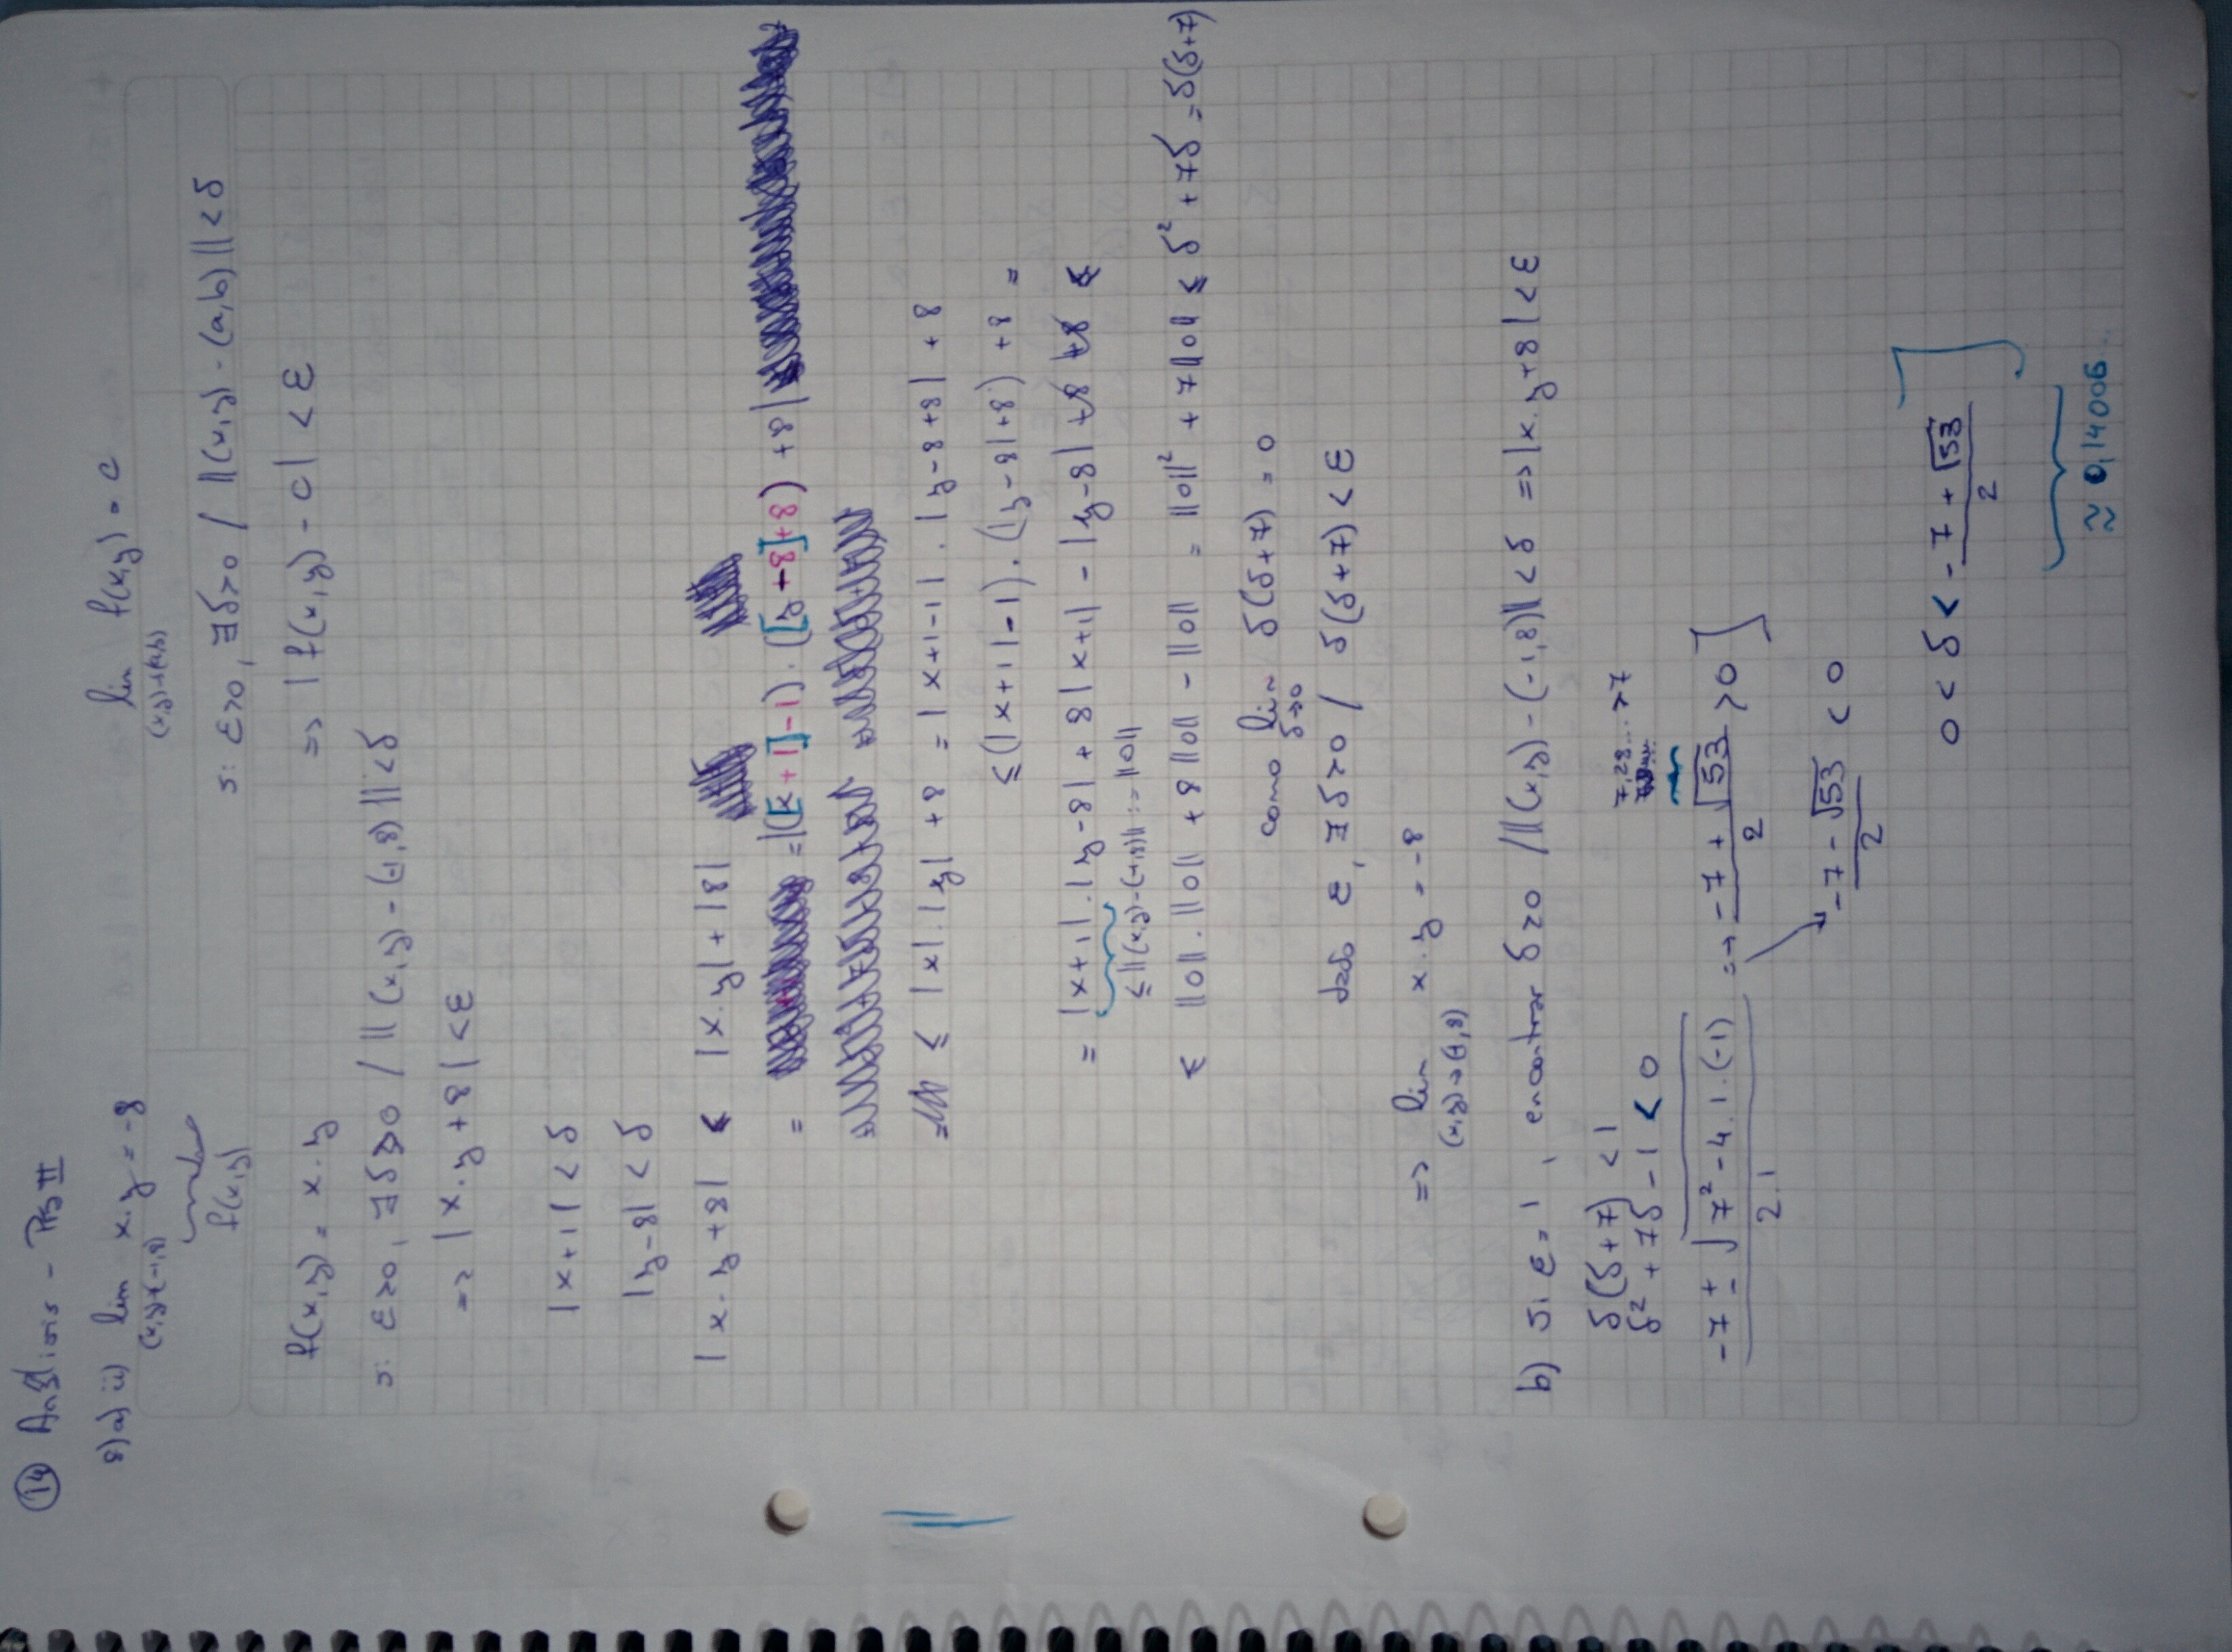 ⑭ Análisis - Prá II
8) a) ii) lim x.y = -8
(x,y)→(-1,8)
f(x,y)
lim f(x,y) = c
(x,y)→(a,b)
si ε>0, ∃δ>0 / ||(x,y) - (a,b)|| < δ
=> |f(x,y) - c| < ε
f(x,y) = x.y
si ε>0, ∃δ>0 / ||(x,y) - (-1,8)|| < δ
=> |x.y + 8| < ε
|x+1| < δ
|y-8| < δ
|x.y + 8| ≤ |x.y| + |8|
= = |([x+1]-1) . ([y-8]+8) + 8|
≤ |x|.|y| + 8 = |x+1-1| . |y-8+8| + 8
≤ (|x+1|-1) . (|y-8|+8) + 8 =
= |x+1|.|y-8| + 8|x+1| - |y-8| +8 +8 ≤
≤ ||(x,y)-(-1,8)|| := ||O||
≤ ||O||.||O|| + 8||O|| - ||O|| = ||O||² + 7||O|| ≤ δ² + 7δ = δ(δ+7)
como lim δ(δ+7) = 0
δ→0
dado ε, ∃δ>0 / δ(δ+7) < ε
=> lim x.y = -8
(x,y)→(-1,8)
b) si ε = 1, encontrar δ>0 / ||(x,y) - (-1,8)|| < δ => |x.y+8| < ε
δ(δ+7) < 1
δ² + 7δ - 1 < 0
7,28... > 7
-7 ± √(7² - 4.1.(-1)) / 2.1 => -7 + √53 / 2 > 0 ]
-7 - √53 / 2 < 0
0 < δ < -7 + √53 / 2 ]
≈ 0,14006